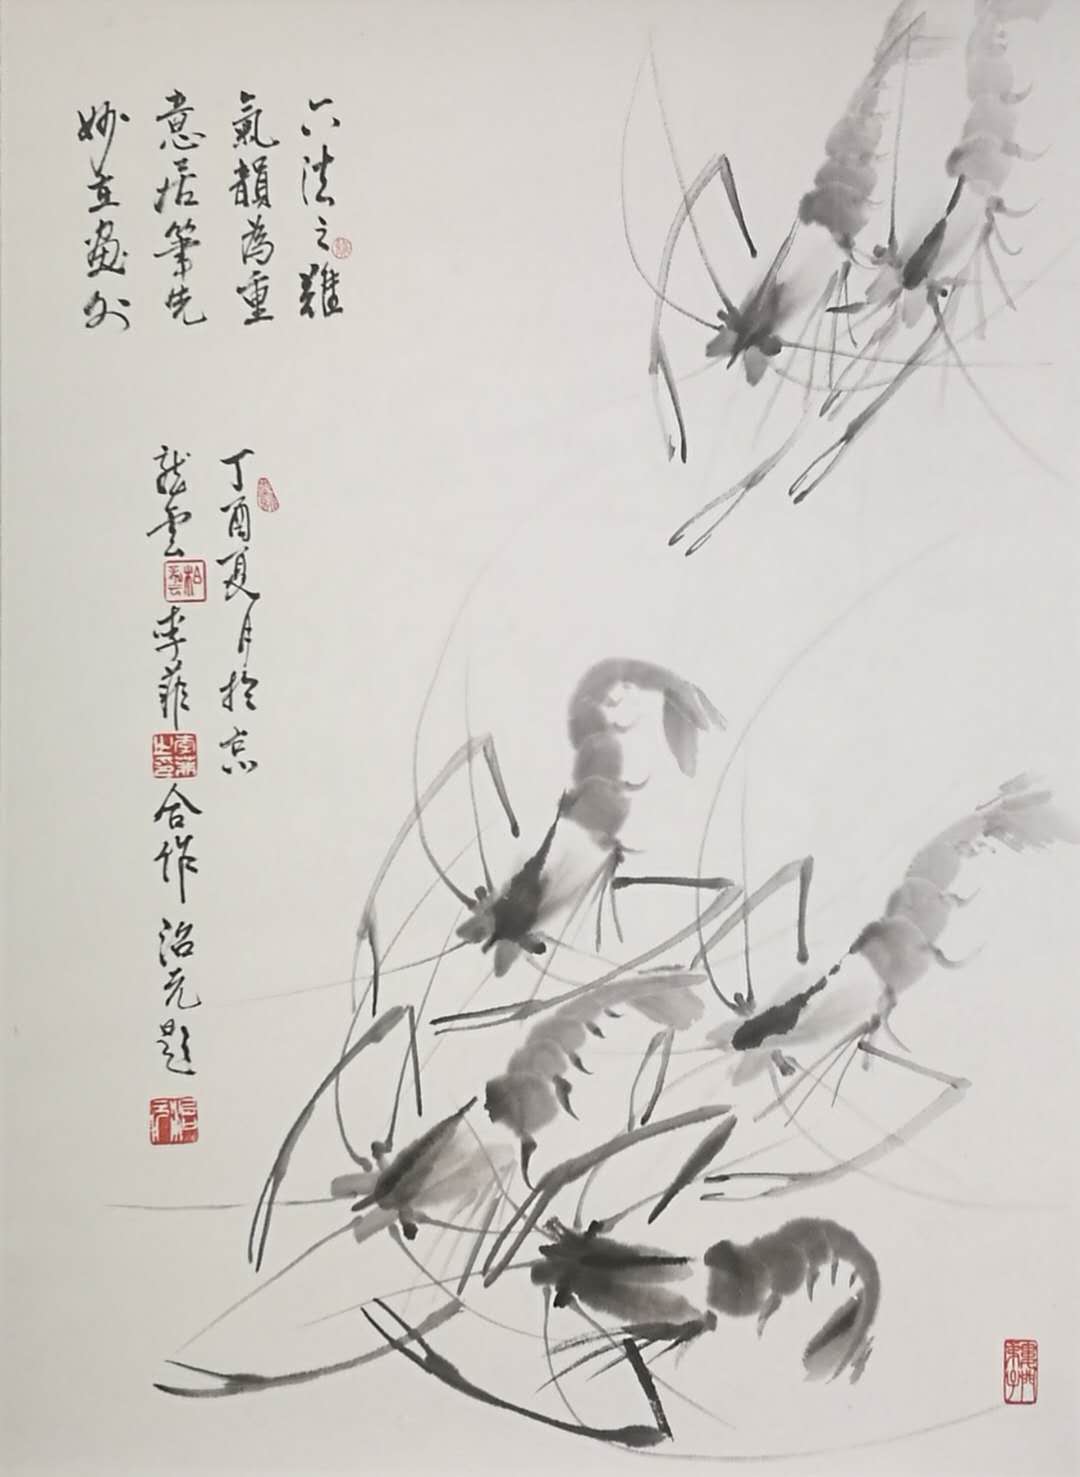 六法之難
氣韻為重
意居筆先
妙在畫外
丁酉夏月於京
龍雲 李菲 合作 治元題
李菲之印
治元